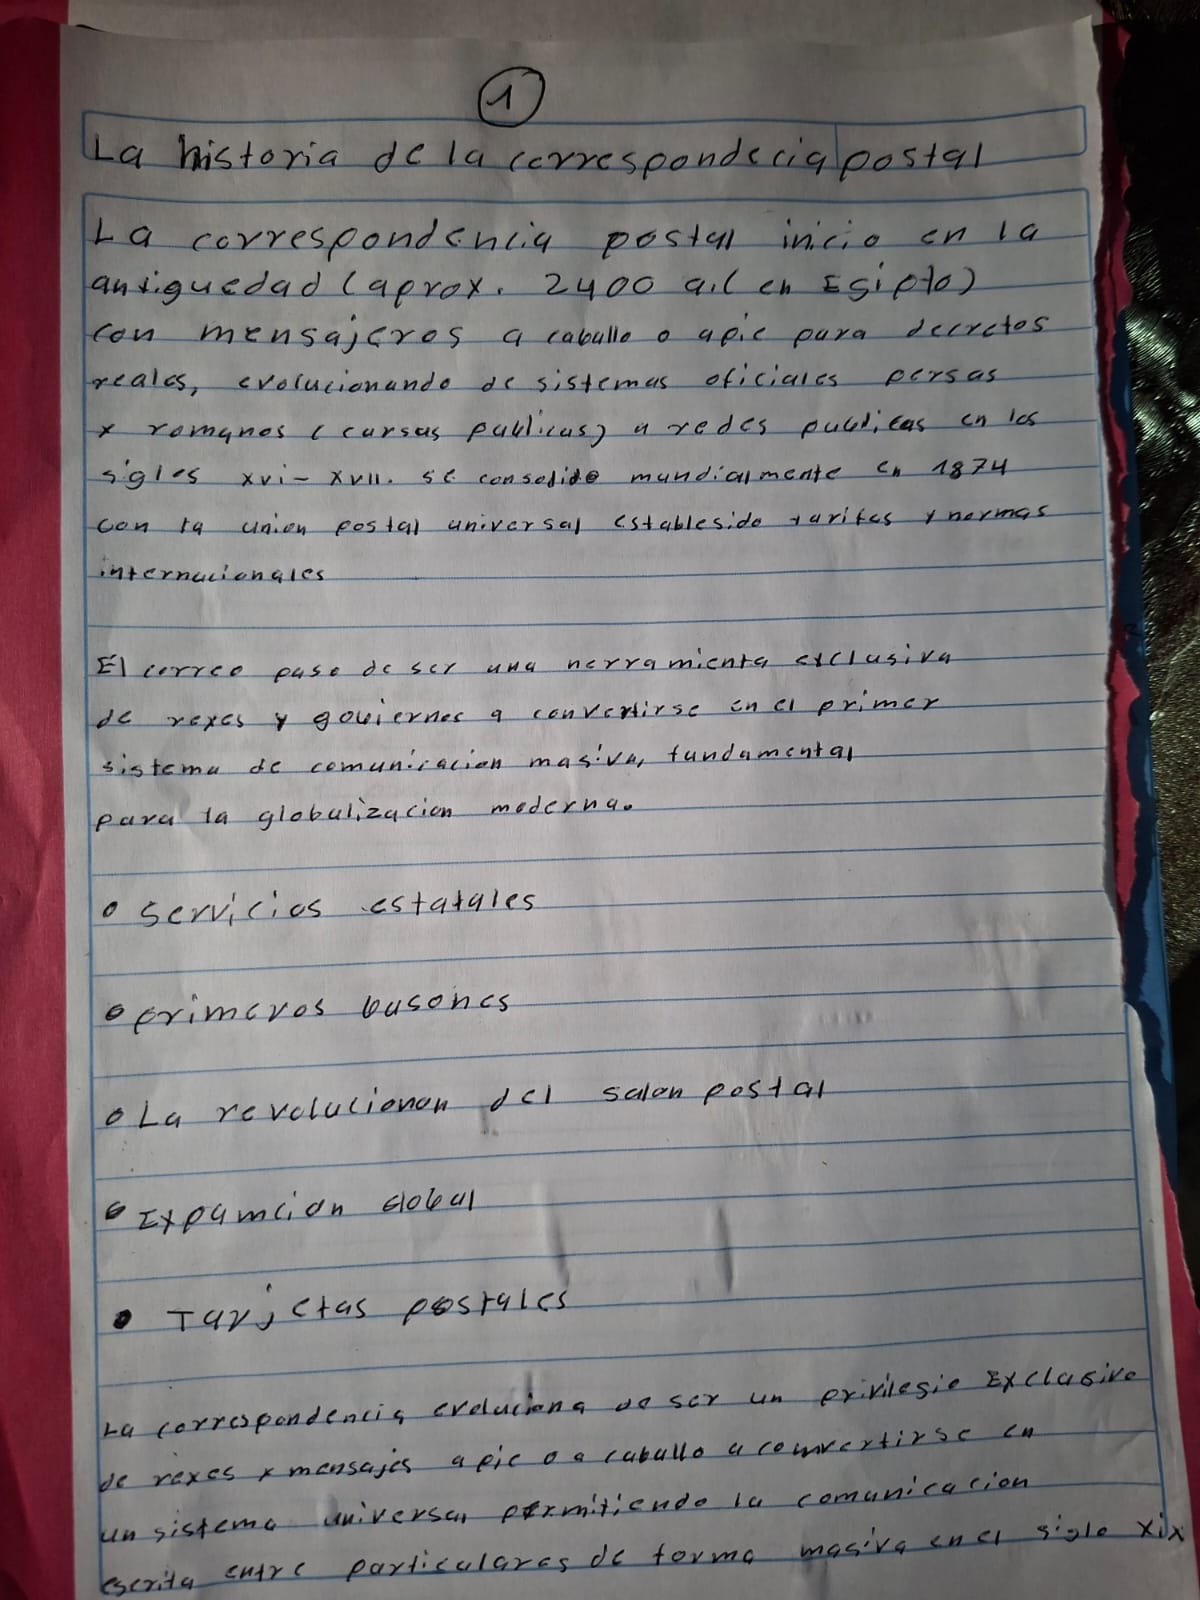 1
La historia de la correspondecia postal
La correspondencia postal inicio en la
antiguedad (aprox. 2400 a.c en Egipto)
con mensajeros a caballo o apie para decretos
reales, evolucionando de sistemas oficiales persas
x romanos (cursas publicus) a redes publicas en los
sigles xvi- xvii. se consolido mundialmente en 1874
con la union postal universal establesido tarifas y normas
internacionales
El correo paso de ser una herramienta exclusiva
de rexes y goviernos a convertirse en el primer
sistema de comunicacion masiva, fundamental
para la globalizacion moderna.
o servicios estatales
o primeros busones
o La revolucionon del salon postal
o Expamcion Global
• Tarjetas postales
La correspondencia evoluciona de ser un privilegio Exclusivo
de rexes x mensajes apie o a caballo a comvertirse en
un sistema universal permitiendo la comunicacion
escrita entre particulares de forma masiva en el siglo xix